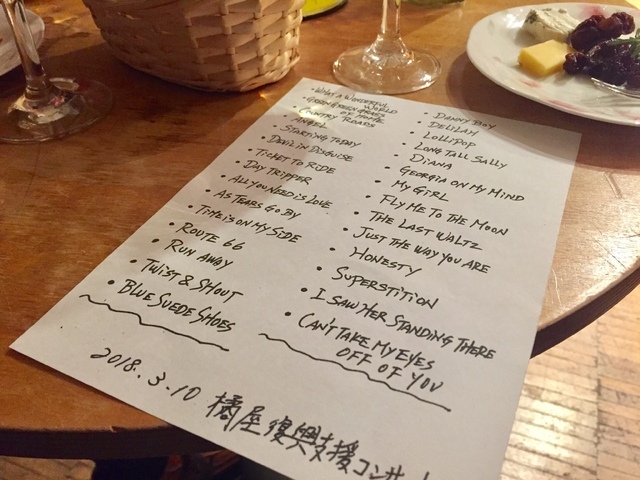 • WHAT A WONDERFUL
WORLD
• GREEN GREEN GRASS
OF HOME
• COUNTRY ROADS
• ANGEL
• STARTING TODAY
• DEVIL IN DISGUISE
• TICKET TO RIDE
• DAY TRIPPER
• ALL YOU NEED IS LOVE
• AS TEARS GO BY
• TIME IS ON MY SIDE
• ROUTE 66
• RUN AWAY
• TWIST & SHOUT
• BLUE SUEDE SHOES
• DANNY BOY
• DELILAH
• LOLLIPOP
• LONG TALL SALLY
• DIANA
• GEORGIA ON MY MIND
• MY GIRL
• FLY ME TO THE MOON
• THE LAST WALTZ
• JUST THE WAY YOU ARE
• HONESTY
• SUPERSTITION
• I SAW HER STANDING THERE
• CAN'T TAKE MY EYES
OFF OF YOU
2018.3.10 橘屋復興支援コンサート